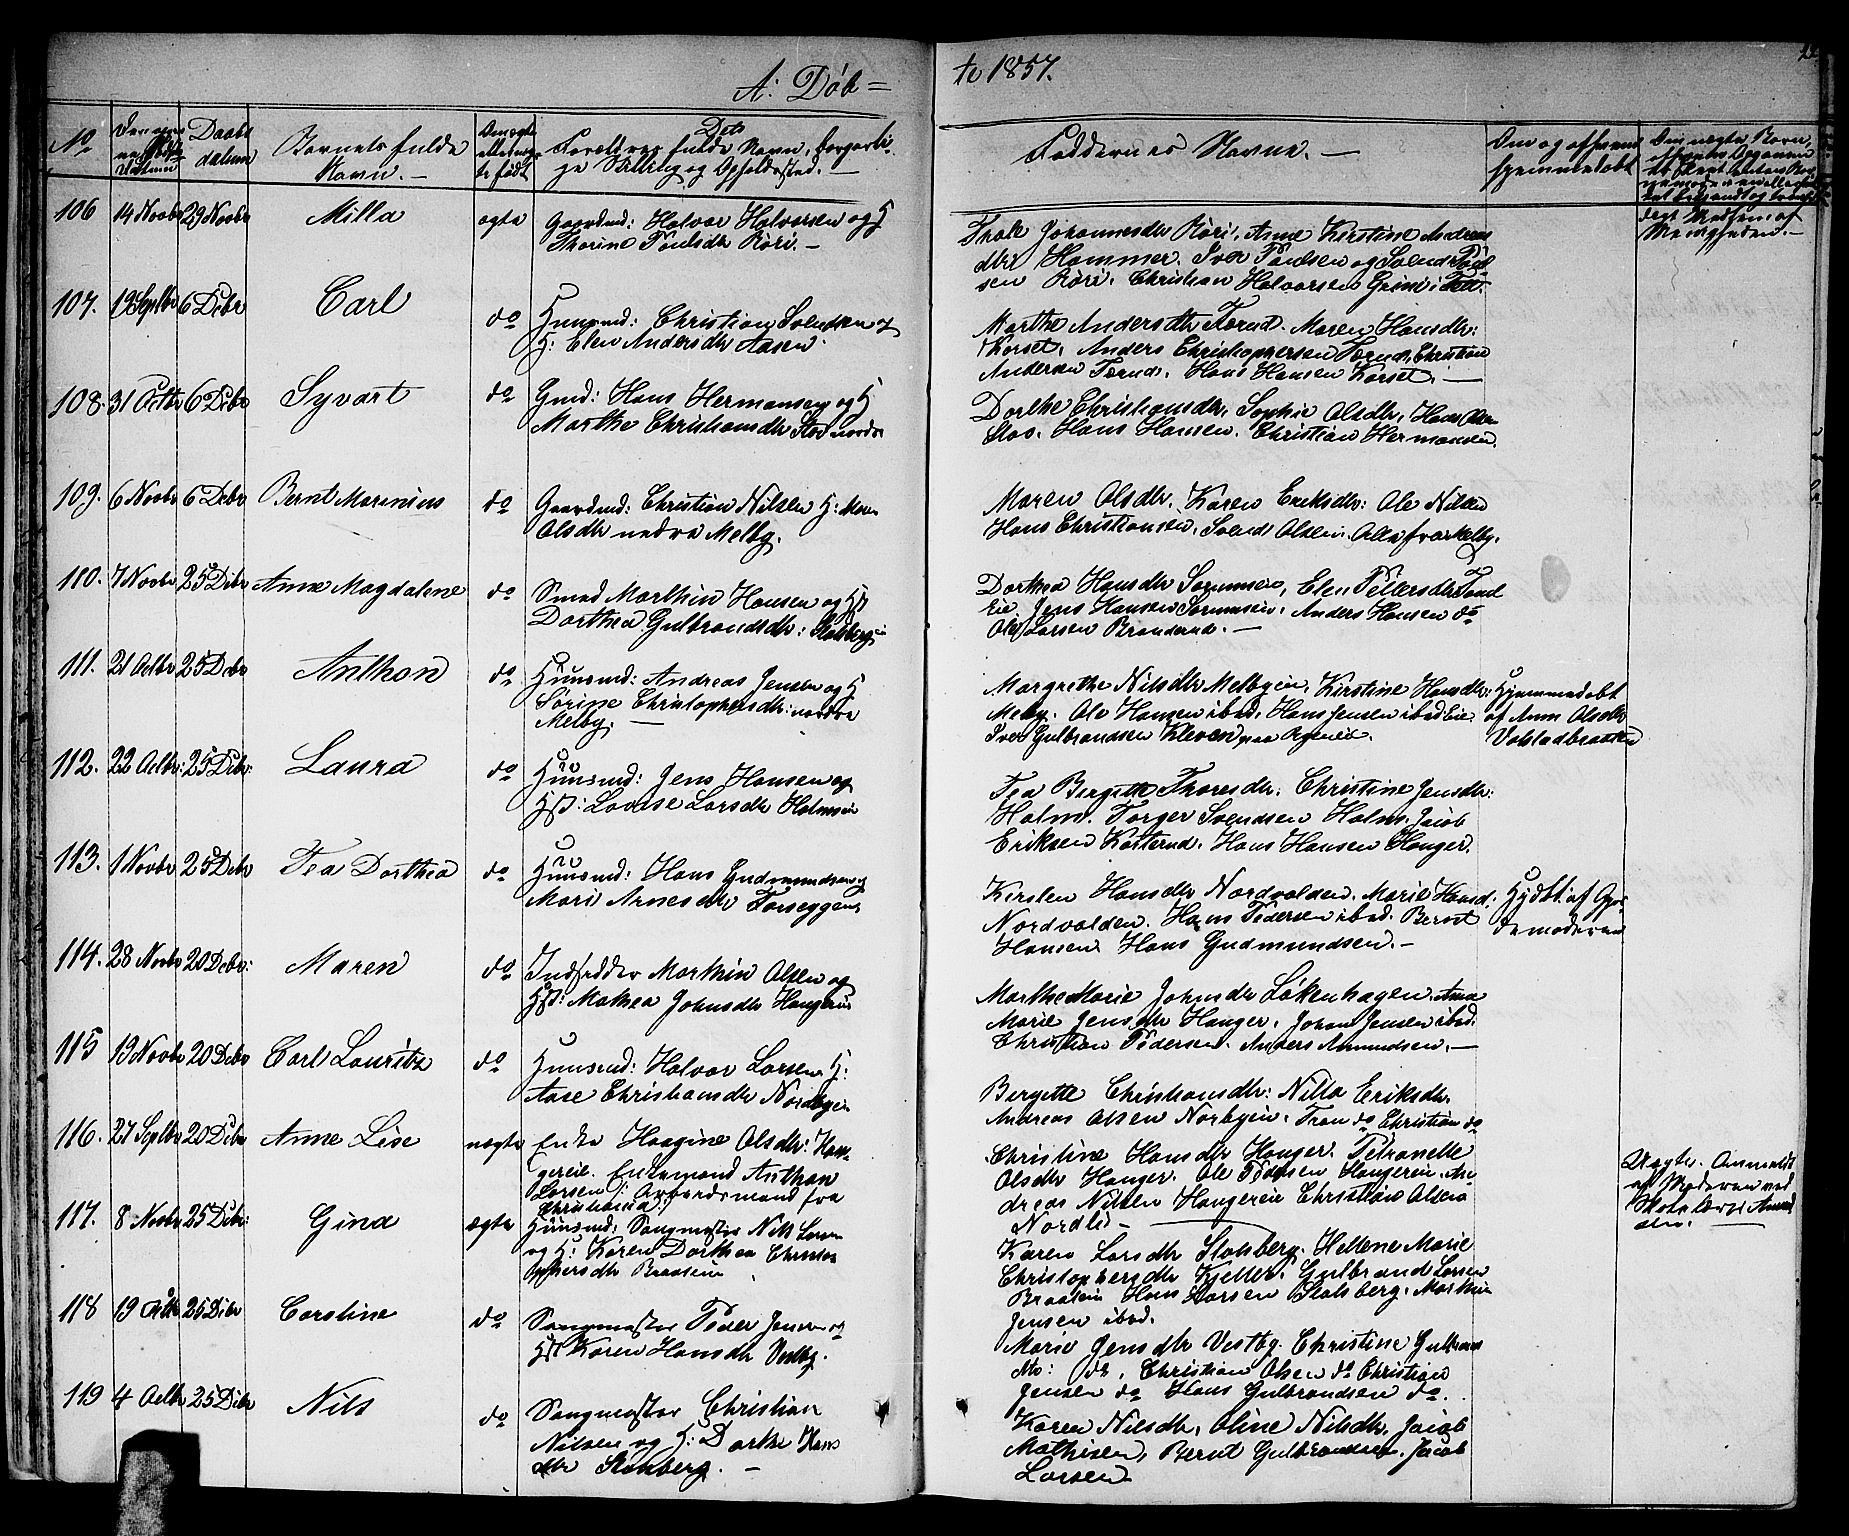 A: Døb=
te 1857.
No
Daabs
datum
Barnets fulde
Navn. —
Forældres fulde Navn, borgerli-
ge Stilling og Opholdssted. —
Faddernes Navne. —
Om og af hvem
hjemmedøbt
Menigheden. —
106 14 Novbr 29 Novbr Milla ægte Gaardmd: Halvor Halvorsen og H
Thorine Poulsdr Röri. —
Johannesdr Röri, Anne Kirstine Anders
dtr Hammer. Iver Poulsen og Svend Poul
sen Röri. Christian Halvorsen
107. 19 Septbr 6 Debr Carl do Huusmd: Christian Svendsen og
H: Elen Andersdr Aasen.
Marthe Andersdtr Torud. Maren Hansdtr:
Korset, Anders Christophersen Torud, Christian
Andersen Torud. Hans Hansen Korset. —
108. 31 Octbr 6 Debr Syvart do Gmd: Hans Hermansen og H
Marthe Christiansdtr Stov nordre
Dorthe Christiansdtr, Sophie Olsdtr, Hans Olsen
Stov. Hans Hansen. Christian Hermansen.
109. 6 Novbr 6 Debr Bernt Marenius do Gaardmd: Christian Nilsen H: Maren
Olsdtr nedre Melby.
Maren Olsdtr. Karen Eriksdtr: Ole Nilsen
Hans Christiansen. Svend Olsen. Alle fra Melby.
110. 7 Novbr 25 Debr Anne Magdalene do Smed Marthin Hansen og Hst
Dorthea Gulbrandsdtr: Stalsberg
Dorthea Hansdtr Sørumsen, Elen Pettersdtr
Eie. Jens Hansen Sørumsen, Anders Hansen do
Ole Larsen Branderud. —
111. 21 Octbr 25 Debr Anthon do Huusmd: Andreas Jensen og H
Sörine Christophersdtr: nordre
Melby. —
Margrethe Nilsdtr Melbyeie, Kirstine Hansdtr:
Melby. Ole Hansen ibid. Hans Jensen ibid Eie
Iver Gulbrandsen Kleven
Hjemmedøbt
af Anne Olsdtr
Volstadbraaten
112. 22 Octbr: 25 Debr: Laura do Huusmd: Jens Hansen og
Hst: Lovise Larsdtr Holmseie
Tea Bergitte Thoresdtr: Christine Jensdtr:
Holm. Torger Svendsen Holm. Jacob
Eriksen Kosterud. Hans Hansen Hauger.
113. 1 Novbr 25 Debr Tea Dorthea do Huusmd: Hans Gudmundsen og
Mari Arnesdtr Torseggen
Kirsten Hansdtr Nordvolden. Marie Hansd:
Nordvolden. Hans Pedersen ibid. Bernt
Hansen. Hans Gudmundsen. —
Hjdbt. af Gjor-
demoderen
114. 28 Novbr 20 Debr: Maren do Indsidder Marthin Olsen og
Hst: Mathea Johnsdtr Haugereie
Marthe Marie Johnsdtr Løkenhagen. Anne
Marie Jensdtr Hauger. Johan Jensen ibid.
Christian Pedersen. Anders Amundsen. —
115 19 Novbr 20 Debr Carl Lauritz do Huusmd: Halvor Larsen H:
Aase Christiansdtr Nordbyeie
Bergitte Christiansdtr: Nilla Eriksdtr.
Andreas Olsen Norbyeie. Iver do Christian do
116. 27 Septbr 20 Debr Anne Lise uægte Enke Haagine Olsdtr: Hau-
gereie. Enkemand Anthon
Larsen Arbeidsmand fra
Christiania.
Christine Hansdtr Hauger. Petronelle
Olsdtr Hauger. Ole Pedersen Haugereie. An
dreas Nilsen Haugereie Christian Olsen
Nordli —
Uægte. Anmeldt
af Moderen ved
Skolelærer
117. 8 Novbr 25 Debr: Gina ægte Huusmd: Sangmester Nils Larsen
og H: Karen Dorthea Christo-
phersdtr Braateeie
Karen Larsdtr Stalsberg. Hellene Marie
Christophersdtr Kjeller. Gulbrand Larsen
Braateeie Hans Larsen Stalsberg. Marthin
Jensen ibid.
118 19 Octbr 25 Debr Caroline do Sangmester Peder Jensen og
Hst Karen Hansdtr Vestby.
Marie Jensdtr Vestby. Christine Gulbrands
dtr: do, Christian Olsen do Christian
Jensen do Hans Gulbrandsen do.
119 4 Octbr 25 Debr Nils do Sangmester Christian
Nilsen og H: Dorthe Hans
dtr Stalsberg. —
Karen Nilsdtr, Oline Nilsdtr, Jacob
Mathisen, Bernt Gulbrandsen. Jacob
Larsen